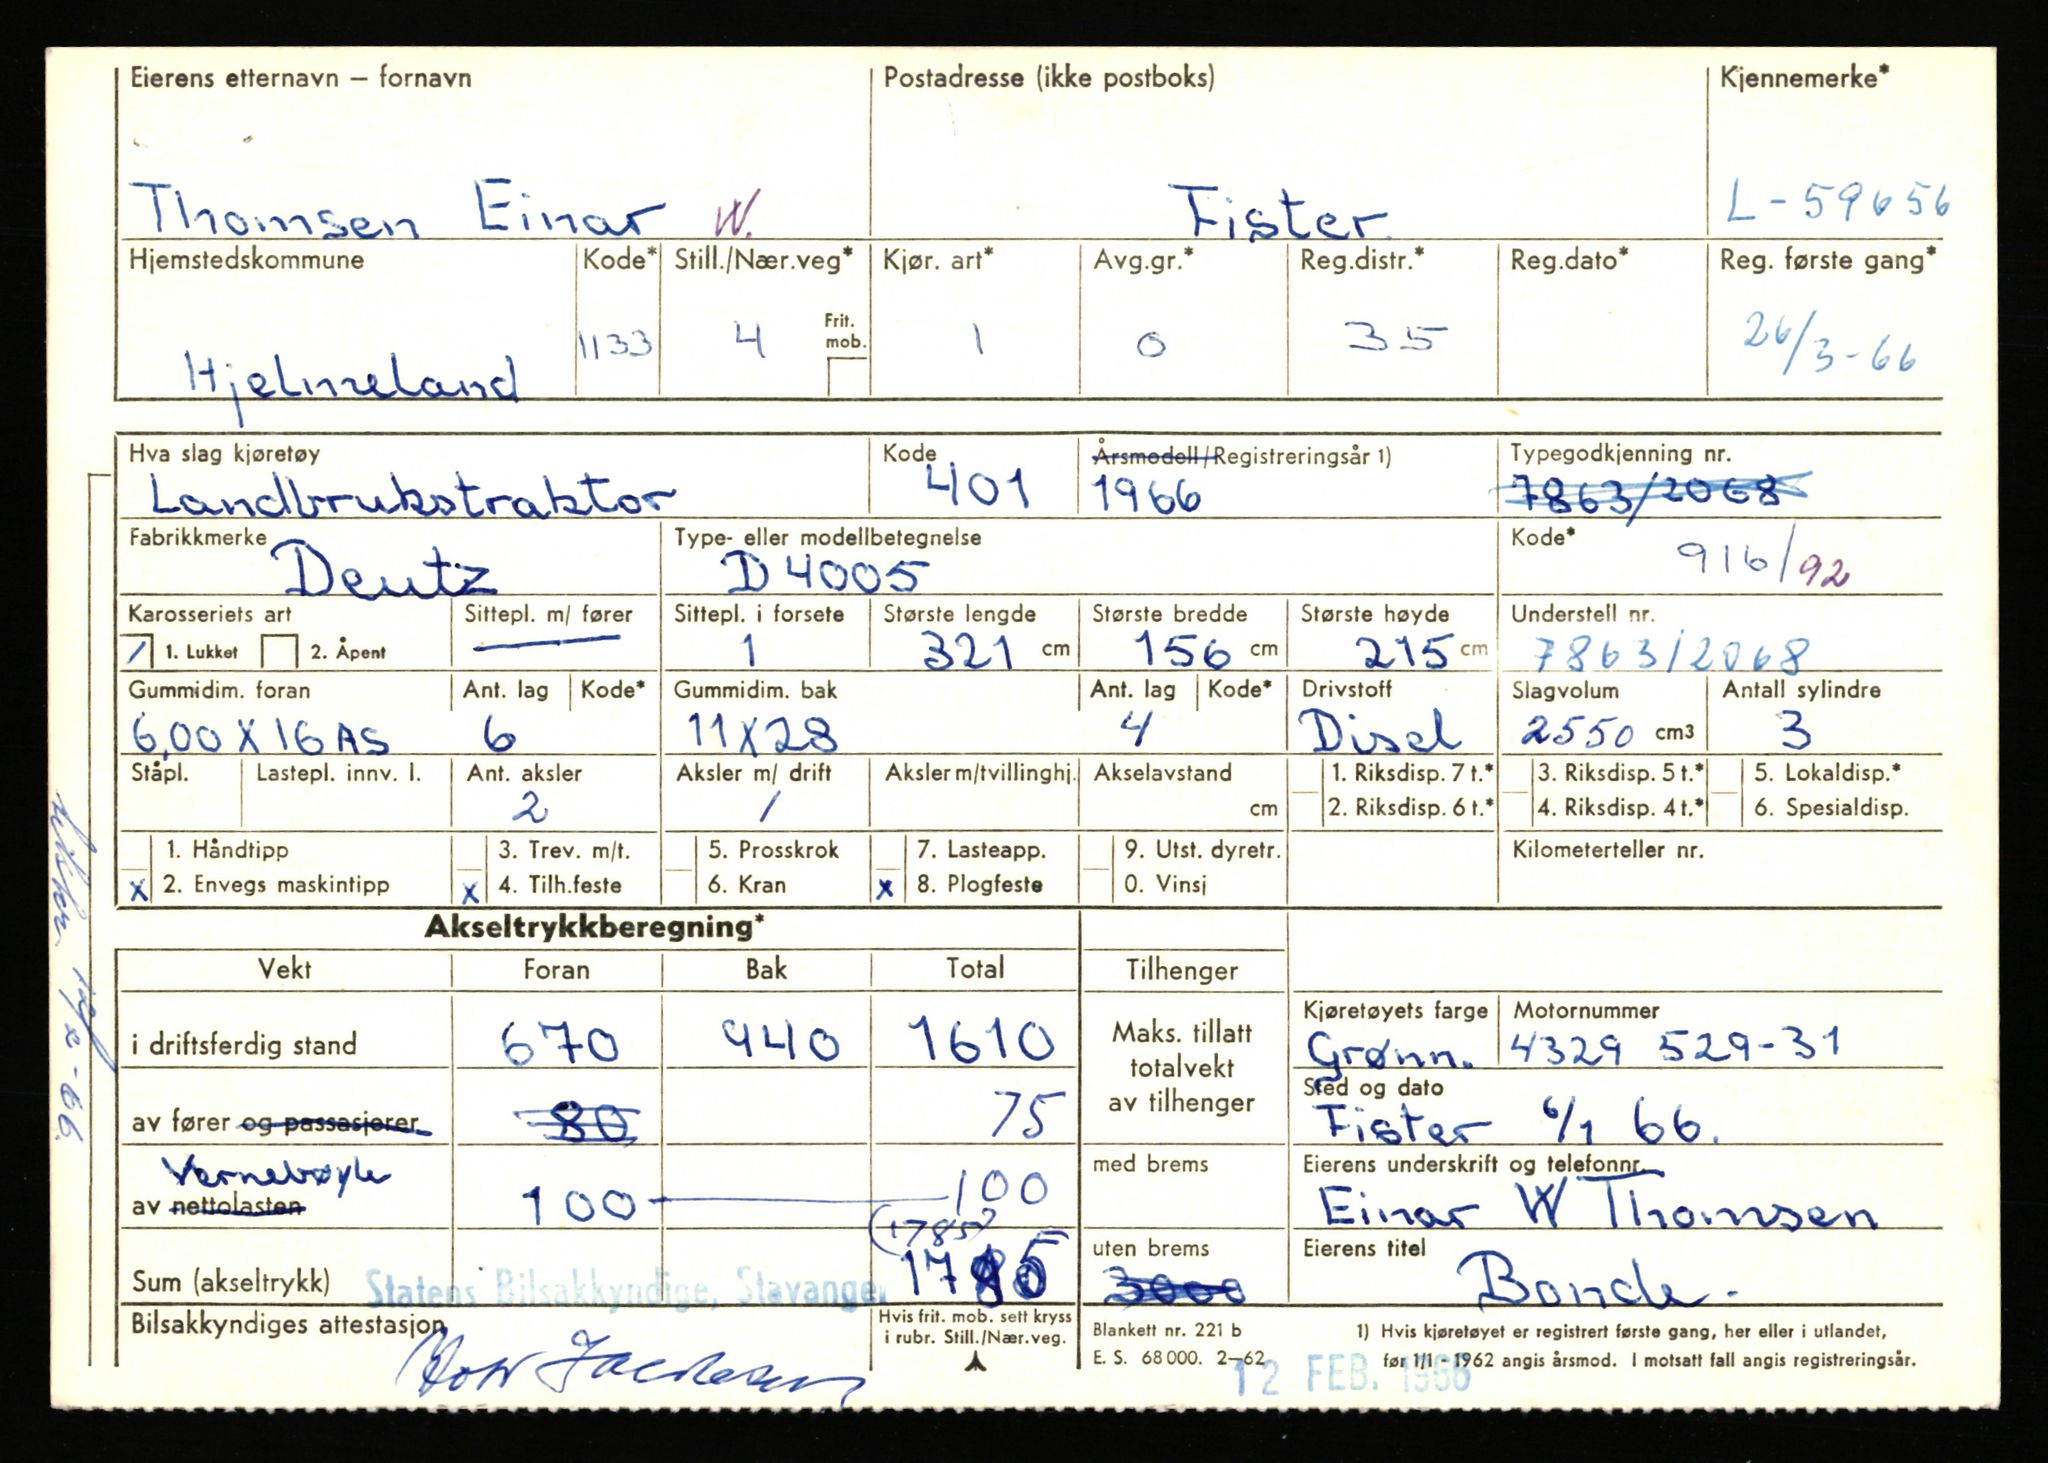 Eierens etternavn – fornavn Postadresse (ikke postboks) Kjennemerke*
Thomsen Einar W. Fister L-59656
Hjemstedskommune Kode* Still./Nær.veg* Kjør. art* Avg.gr.* Reg.distr.* Reg.dato* Reg. første gang*
Frit. mob.
Hjelmeland 1133 4 1 0 35 26/3-66
Hva slag kjøretøy Kode Årsmodell/Registreringsår 1) Typegodkjenning nr.
Landbrukstraktor 401 1966 7863/2068
Fabrikkmerke Type- eller modellbetegnelse Kode*
Deutz D 4005 916/92
Karosseriets art Sittepl. m/ fører Sittepl. i forsete Største lengde Største bredde Største høyde Understell nr.
/ 1. Lukket 2. Åpent — 1 321 cm 156 cm 215 cm 7863/2068
Gummidim. foran Ant. lag Kode* Gummidim. bak Ant. lag Kode* Drivstoff Slagvolum Antall sylindre
6,00 X 16 AS 6 11 X 28 4 Disel 2550 cm3 3
Ståpl. Lastepl. innv. l. Ant. aksler Aksler m/ drift Aksler m/tvillinghj. Akselavstand 1. Riksdisp. 7 t.* 3. Riksdisp. 5 t.* 5. Lokaldisp.*
2 / cm 2. Riksdisp. 6 t.* 4. Riksdisp. 4 t.* 6. Spesialdisp.
1. Håndtipp 3. Trev. m/t. 5. Prosskrok 7. Lasteapp. 9. Utst. dyretr. Kilometerteller nr.
x 2. Envegs maskintipp x 4. Tilh.feste 6. Kran x 8. Plogfeste 0. Vinsj
Akseltrykkberegning*
Vekt Foran Bak Total Tilhenger
Kjøretøyets farge Motornummer
i driftsferdig stand 670 940 1610 Maks. tillatt totalvekt av tilhenger Grønn. 4329 529-31
Sted og dato
av fører og passasjerer 80 75 Fister 6/1 66.
Vernebøyle med brems Eierens underskrift og telefonnr.
av nettolasten 100 — 100 Einar W Thomsen
(1785) uten brems Eierens titel
Sum (akseltrykk) 1785 3000 Bonde.
Statens Bilsakkyndige, Stavanger
Bilsakkyndiges attestasjon Hvis frit. mob. sett kryss i rubr. Still./Nær.veg. Blankett nr. 221 b 1) Hvis kjøretøyet er registrert første gang, her eller i utlandet,
E. S. 68 000. 2–62 før 1/1 - 1962 angis årsmod. I motsatt fall angis registreringsår.
12 FEB. 1966